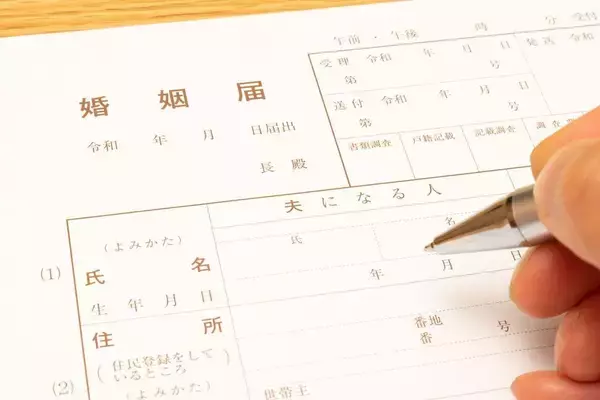 午前・午後 時 分 受付
婚姻届
令和 年 月 日届出
長殿
受理 令和 年 月 日
第 号
送付 令和 年 月 日
第 号
発送 令和
書類調査 戸籍記載 記載調査 調査
夫になる人
(1)
(よみかた)
氏 名
氏名
生年月日
年 月 日
住所
(住民登録をして
いるところ)
番地
番 号
(2)
(よみかた)
世帯主